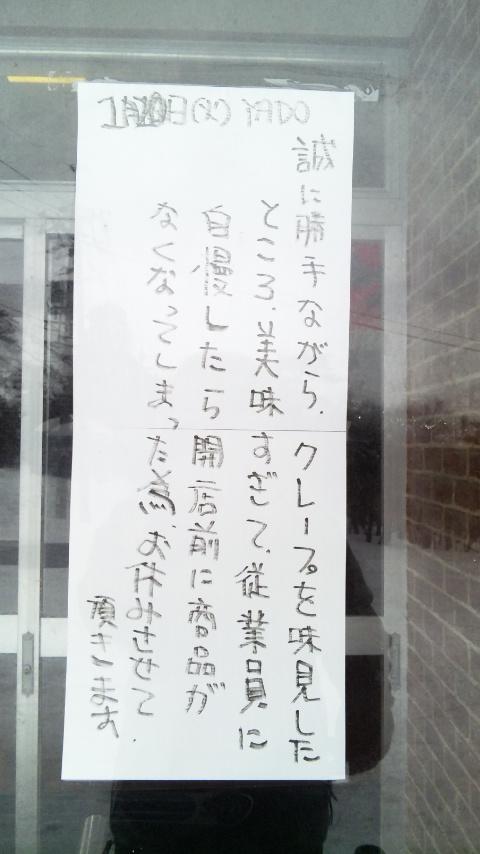 1月20日(火) YADO
誠に勝手ながら、クレープを味見した
ところ、美味すぎて、従業員に
自慢したら開店前に商品が
なくなってしまった為、お休みさせて
頂きます.